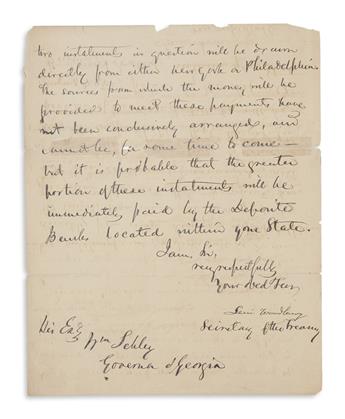 two instalments in question will be drawn
directly from either New York or Philadelphia.
The sources from which the money will be
provided to meet these payments have
not been conclusively arranged, and
cannot be, for some time to come —
but it is probable that the greater
portion of these instalments will be
immediately paid by the Deposite
Banks located within your State.
I am, Sir,
very respectfully
Your obed. Serv.
Levi Woodbury
Secretary of the Treasury
His Exy
Wm Schley
Governor of Georgia